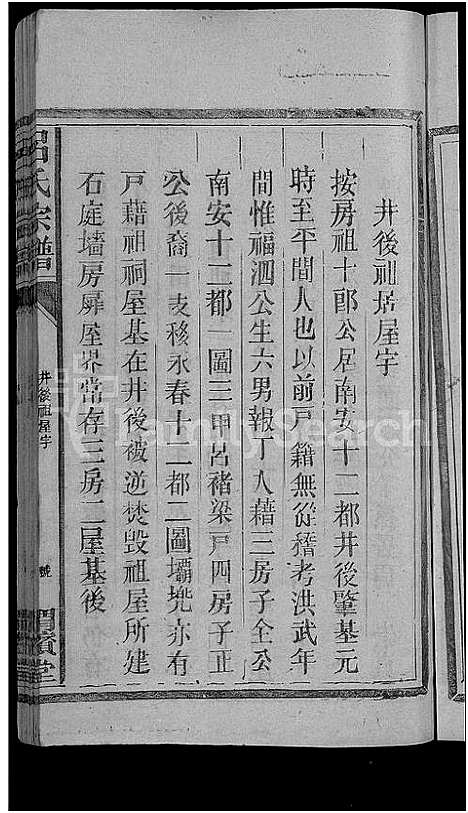 井後祖居屋宇
按房祖十郎公居南安十二都井後肇基元
時至平間人也以前戸籍無從稽考洪武年
間惟福泗公生六男報丁人藉三房子全公
南安十二都一圖三甲呂褚梁戸四房子正
公後裔一支移永春十二都二圖壩兠亦有
戸藉祖祠屋基在井後被逆焚毀祖屋所建
石庭墻房屏屋界當存三房二屋基後
呂氏宗譜
井後祖屋宇
號
渭濱堂
FamilySearch